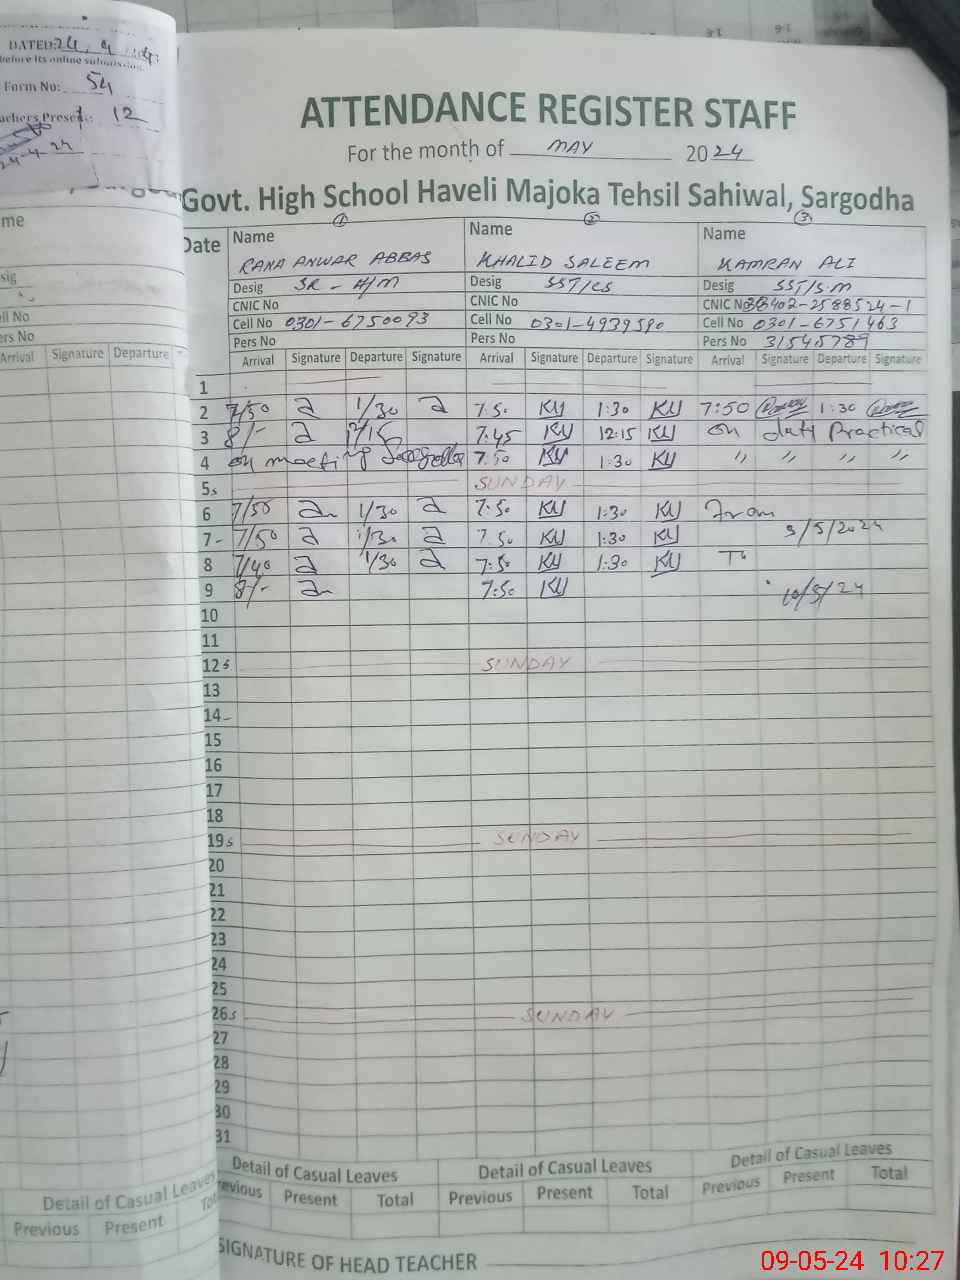 DATED: 24, 4
before its online submission.
Form No: 54
Teachers Present: 12
24-4-24
ATTENDANCE REGISTER STAFF
For the month of MAY 2024
Govt. High School Haveli Majoka Tehsil Sahiwal, Sargodha
① ② ③
Date Name Name Name
RANA ANWAR ABBAS KHALID SALEEM KAMRAN ALI
Desig SR - H/M Desig SST/CS Desig SST/S.M
CNIC No CNIC No CNIC No 38402-2588524-1
Cell No 0301-6750093 Cell No 0301-4939590 Cell No 0301-6751463
Pers No Pers No Pers No 31545789
Arrival Signature Departure Arrival Signature Departure Signature Arrival Signature Departure Signature Arrival Signature Departure Signature
1
2 7/50 1/30 7:50 KU 1:30 KU 7:50 1:30
3 8/- 12/15 7:45 KU 12:15 KU on duty Practical
4 on meeting 7:50 KU 1:30 KU " " " "
5s SUNDAY
6 7/50 1/30 7:50 KU 1:30 KU From
7- 7/50 1/30 7:50 KU 1:30 KU 3/5/2024
8 7/40 1/30 7:50 KU 1:30 KU To
9 8/- 7:50 KU 10/5/24
10
11
12s SUNDAY
13
14-
15
16
17
18
19s SUNDAY
20
21
22
23
24
25
26s SUNDAY
27
28
29
30
31
Detail of Casual Leaves Detail of Casual Leaves Detail of Casual Leaves Detail of Casual Leaves
Previous Present Previous Present Total Previous Present Total Previous Present Total
SIGNATURE OF HEAD TEACHER
09-05-24 10:27